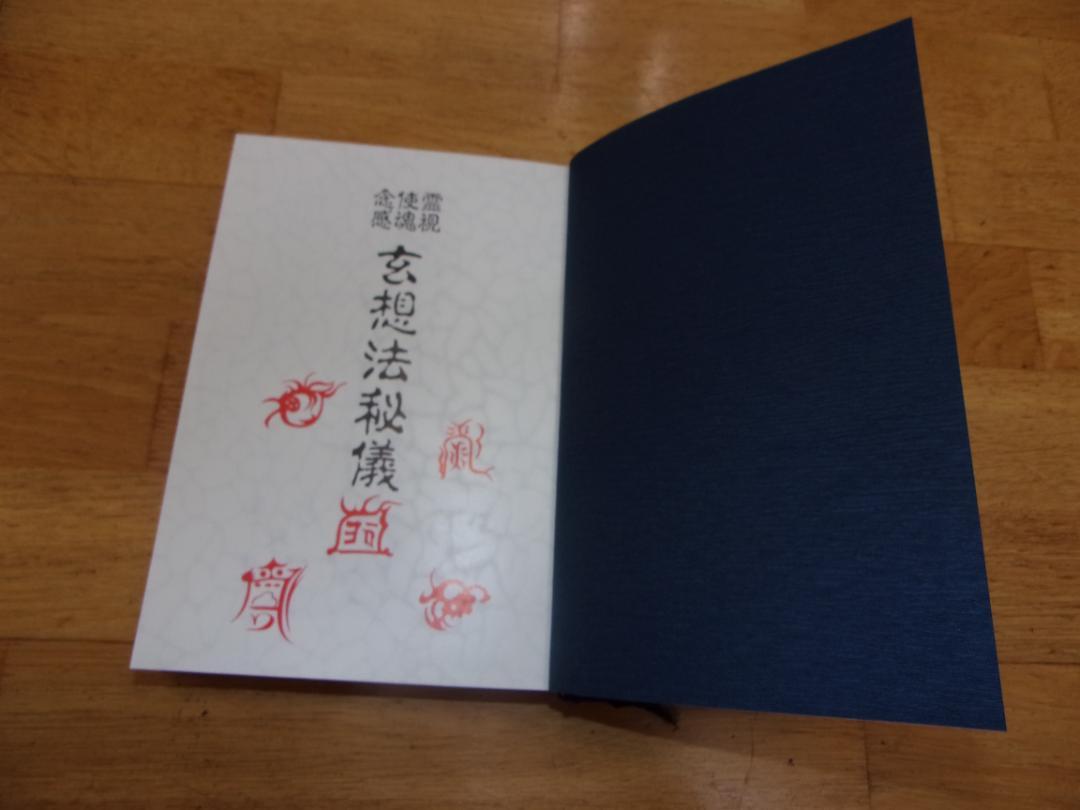 霊視
使魂
念感
玄想法秘儀